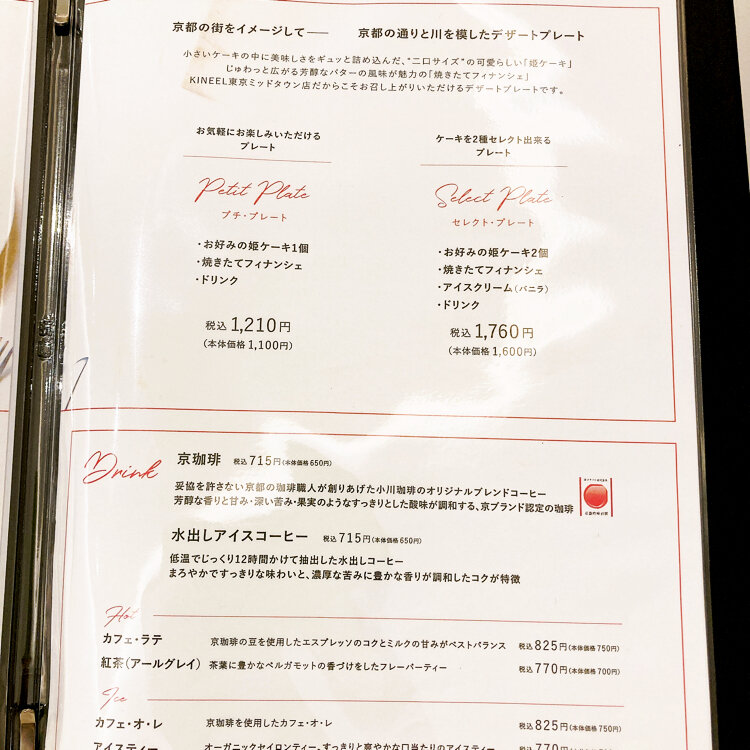 京都の街をイメージして── 京都の通りと川を模したデザートプレート
小さいケーキの中に美味しさをギュッと詰め込んだ、"二口サイズ"の可愛らしい「姫ケーキ」
じゅわっと広がる芳醇なバターの風味が魅力の「焼きたてフィナンシェ」
KINEEL東京ミッドタウン店だからこそお召し上がりいただけるデザートプレートです。
お気軽にお楽しみいただける
プレート
Petit Plate
プチ・プレート
・お好みの姫ケーキ1個
・焼きたてフィナンシェ
・ドリンク
税込 1,210円
(本体価格 1,100円)
ケーキを2種セレクト出来る
プレート
Select Plate
セレクト・プレート
・お好みの姫ケーキ2個
・焼きたてフィナンシェ
・アイスクリーム(バニラ)
・ドリンク
税込 1,760円
(本体価格 1,600円)
Drink
京珈琲 税込 715円(本体価格 650円)
妥協を許さない京都の珈琲職人が創りあげた小川珈琲のオリジナルブレンドコーヒー
芳醇な香りと甘み・深い苦み・果実のようなすっきりとした酸味が調和する、京ブランド認定の珈琲
水出しアイスコーヒー 税込 715円(本体価格 650円)
低温でじっくり12時間かけて抽出した水出しコーヒー
まろやかですっきりな味わいと、濃厚な苦みに豊かな香りが調和したコクが特徴
Hot
カフェ・ラテ 京珈琲の豆を使用したエスプレッソのコクとミルクの甘みがベストバランス 税込 825円(本体価格 750円)
紅茶(アールグレイ) 茶葉に豊かなベルガモットの香づけをしたフレーバーティー 税込 770円(本体価格 700円)
Ice
カフェ・オ・レ 京珈琲を使用したカフェ・オ・レ 税込 825円(本体価格 750円)
アイスティー オーガニックセイロンティー。すっきりと爽やかな口当たりのアイスティー 税込 770円(本体価格 700円)